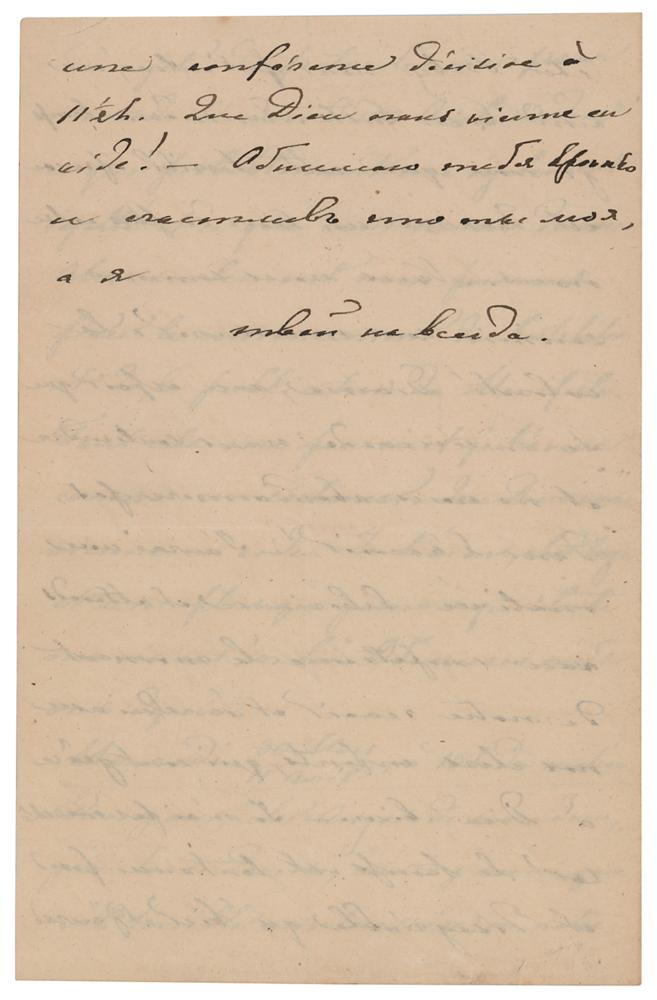 une conférence décisive à
11½h. Que Dieu nous vienne en
aide! — Обнимаю тебя
и счастливъ что ты моя,
а я
твой на всегда.